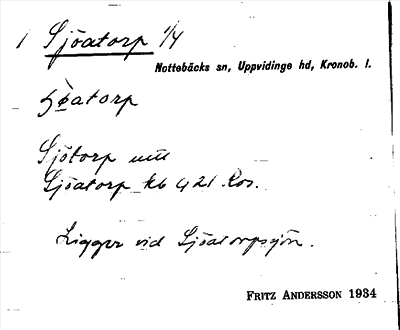 1 Sjöatorp 1/4
Nottebäcks sn, Uppvidinge hd, Kronob. l.
Sjötorp
Sjöatorp kb 921 Ros.
Ligger vid Sjöatorpsjön.
FRITZ ANDERSSON 1934